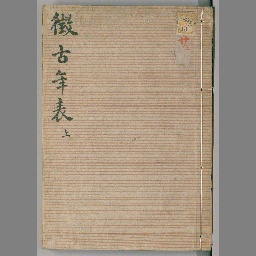 徴古年表
上